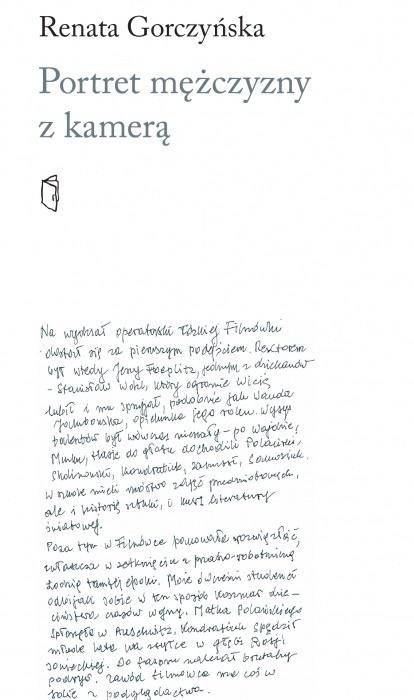 Renata Gorczyńska
Portret mężczyzny
z kamerą
Na wydział operatorski łódzkiej Filmówki
dostał się za pierwszym podejściem. Rektorem
był wtedy Jerzy Toeplitz, jednym z dziekanów
- Stanisław Wohl, który ogromnie Wicię
lubił i mu sprzyjał, podobnie jak Wanda
Jakubowska, opiekunka jego roku. Wysyp
talentów był wówczas niemały - po Wajdzie,
Munku, Hasie do głosu dochodzili Polański,
Skolimowski, Kondratiuk, Zanussi,
W szkole mieli mnóstwo zajęć przedmiotowych,
ale i historię sztuki, i kurs literatury
światowej.
Poza tym w Filmówce panowała rozwiązłość,
zwłaszcza w zetknięciu z pracno-robotniczą
Łodzią tamtej epoki. Może ówcześni studenci
odbijali sobie w ten sposób koszmar dzie-
ciństwa czasów wojny. Matka Polańskiego
spłonęła w Auschwitz, Kondratiuk spędził
młode lata na zsyłce w głębi Rosji
sowieckiej. Do fasonu należał brutalny
podryw. Zawód filmowca ma coś w
sobie z podglądactwa.